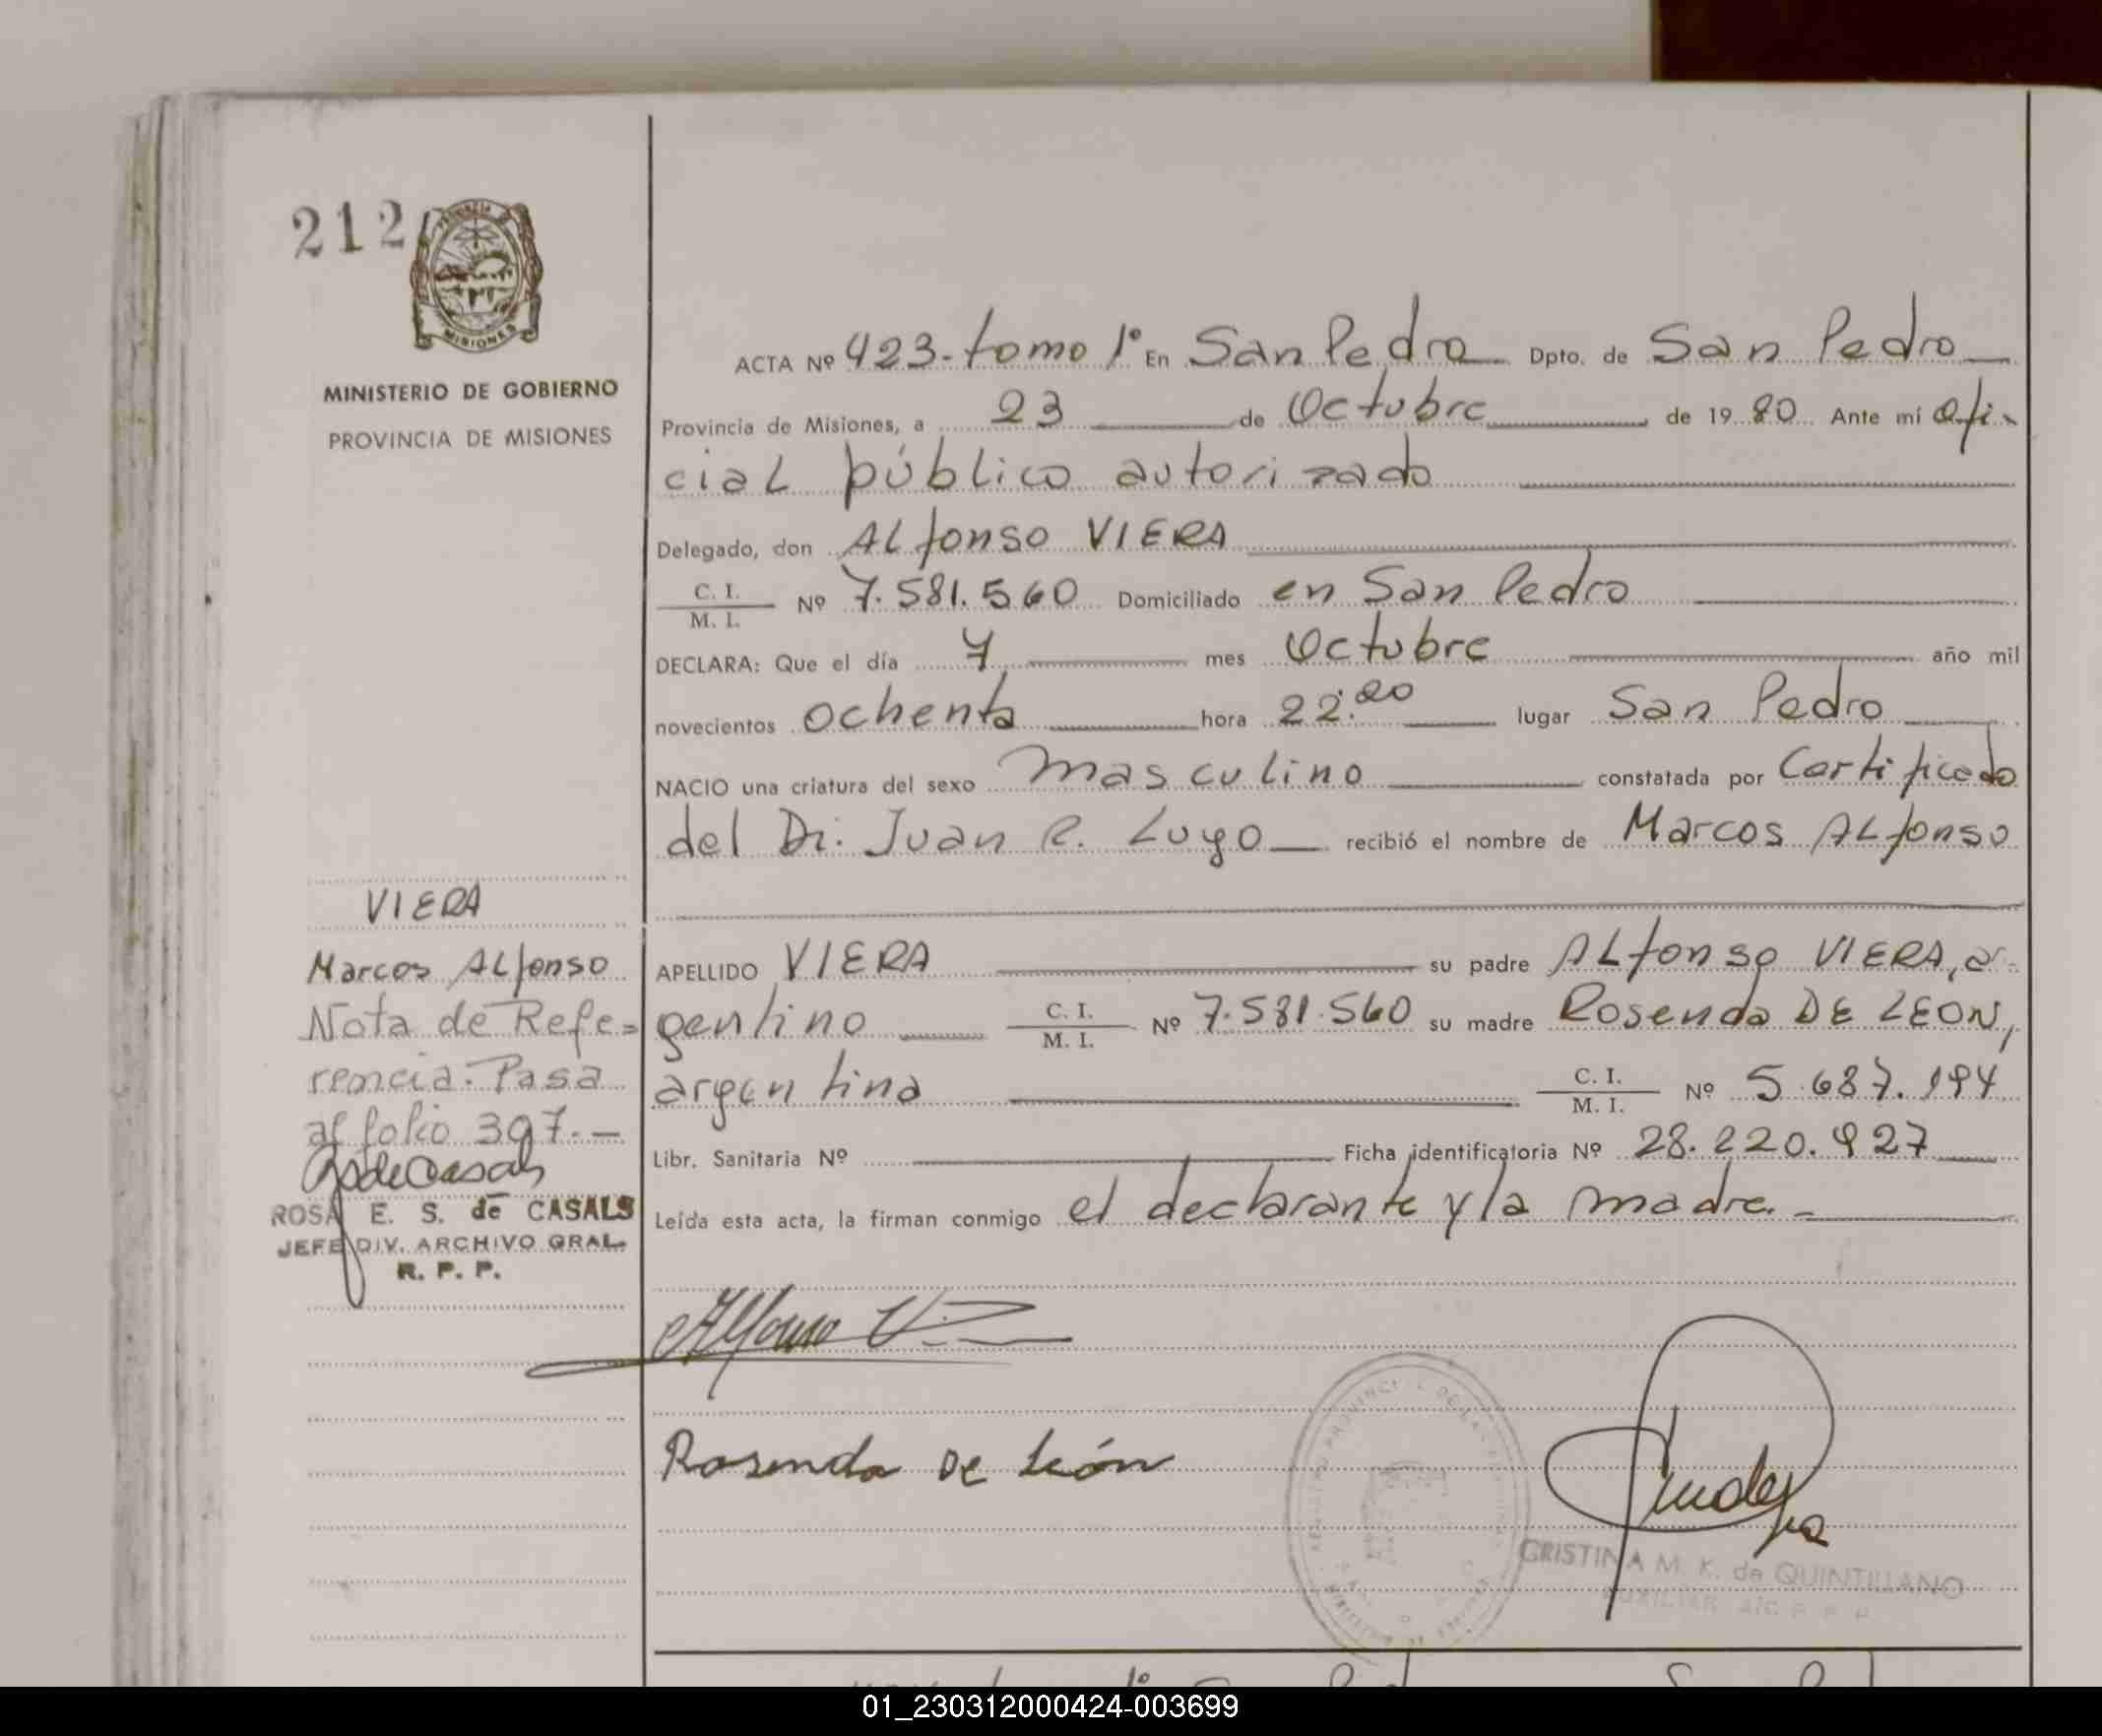 212
MINISTERIO DE GOBIERNO
PROVINCIA DE MISIONES
ACTA Nº 423-tomo 1º En San Pedro Dpto. de San Pedro
Provincia de Misiones, a 23 de Octubre de 19 80 Ante mí Ofi-
cial público autorizado
Delegado, don ALfonso VIERA
C. I.
M. I. Nº 7.581.560 Domiciliado en San Pedro
DECLARA: Que el día 7 mes Octubre año mil
novecientos ochenta hora 22:20 lugar San Pedro
NACIO una criatura del sexo masculino constatada por Certificado
del Dr. Juan R. Lugo recibió el nombre de Marcos ALfonso
VIERA
Marcos ALfonso
Nota de Refe=
rencia. Pasa
al folio 397.-
ROSA E. S. de CASALS
JEFE DIV. ARCHIVO GRAL.
R. P. P.
APELLIDO VIERA su padre ALfonso VIERA, ar-
gentino C. I.
M. I. Nº 7.581.560 su madre Rosenda DE LEON,
argentina C. I.
M. I. Nº 5.687.194
Libr. Sanitaria Nº Ficha identificatoria Nº 28.220.927
Leída esta acta, la firman conmigo el declarante y la madre.-
Alfonso
Rosenda De León
CRISTINA M. K. de QUINTILLANO
AUXILIAR
01_230312000424-003699